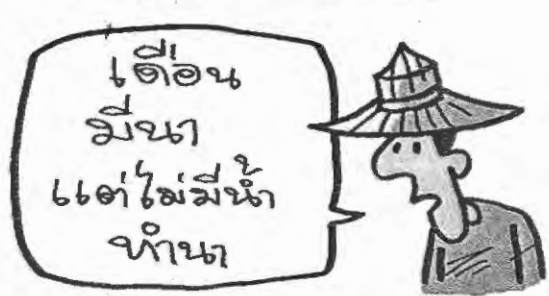 เดือน
มีนา
แต่ไม่มีน้ำ
ทำนา